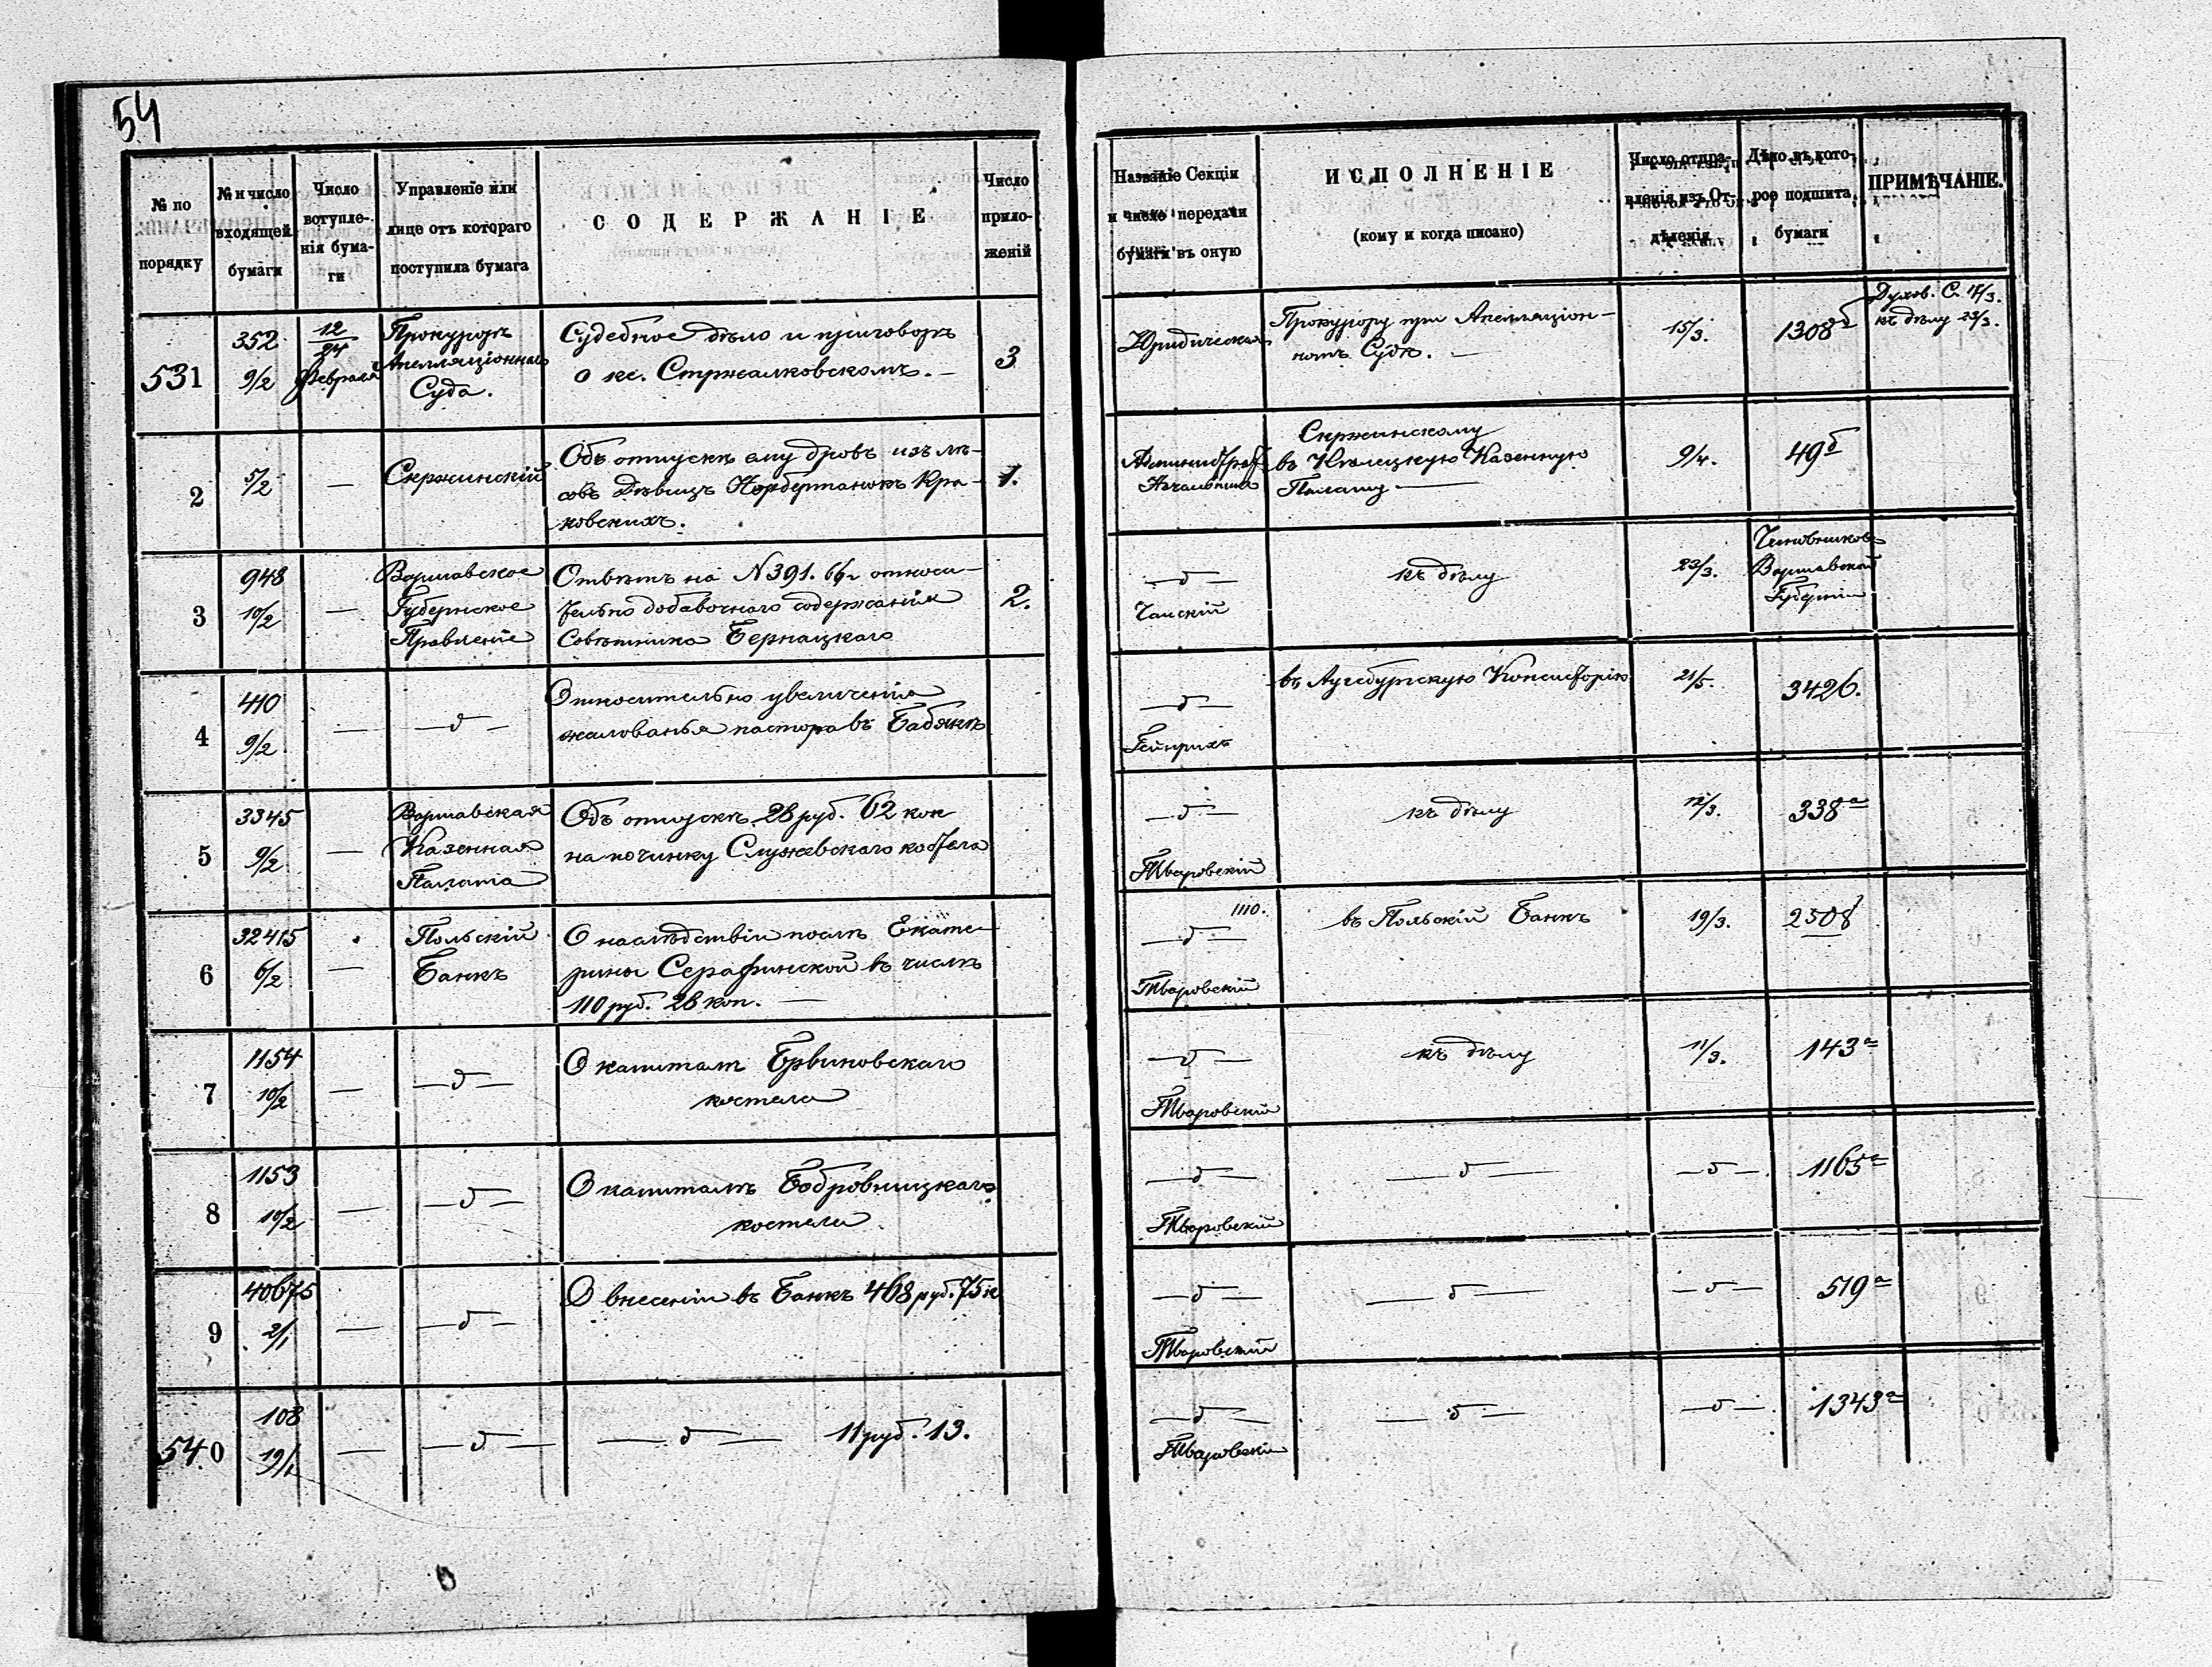 54
№ по порядку
№ и число входящей бумаги
Число вступленія бумаги
Управленіе или лице отъ котораго поступила бумага
СОДЕРЖАНІЕ
Число приложеній
Названіе Секціи и число передачи бумаги въ оную
ИСПОЛНЕНІЕ
(кому и когда писано)
Число отправленія изъ Отдѣленія
Дѣло въ которое подшита бумаги
ПРИМѢЧАНІЕ.
531
352
9/2
12/24 февраля
Прокуроръ
Апелляціоннаго
Суда.
Судебное дѣло и приговоръ
о кс. Стржалковскомъ. —
3
Юридическая
Прокурору при Апелляціон-
номъ Судѣ. —
15/3.
1308
Духов. С. 17/3.
къ дѣлу 23/3.
2
5/2
—
Скржинскій
Объ отпускѣ ему дровъ изъ лѣ-
совъ Дѣвицъ Норбертанокъ Кра-
ковскихъ.
1.
Скржинскому
въ Кѣлецкую Казенную
Палату —
9/4.
49б
3
948
10/2
—
Варшавское
Губернское
Правленіе
Отвѣтъ на N 391. 66г относи-
тельно добавочнаго содержанія
Совѣтника Бернацкаго
2.
— д —
Чайскій
къ дѣлу
23/3.
Чиновниковъ
Варшавской
Губерніи
4
410
9/2
—
— д —
Относительно увеличенія
жалованья пастора въ Бабякѣ
— д —
Гейнрихъ
въ Аугсбургскую Консисторію
21/5.
3426.
5
3345
9/2
—
Варшавская
Казенная
Палата
Объ отпускѣ 28 руб. 62 коп
на починку Служевскаго костела
— д —
Тваровскій
къ дѣлу
12/3.
338а
6
32415
6/2
—
Польскій
Банкъ
О наслѣдствіи послѣ Екате-
рины Серафинской въ числѣ
110 руб. 28 коп. —
1110.
— д —
Тваровскій
въ Польскій Банкъ
19/3.
2508
7
1154
10/2
—
— д —
О капиталѣ Брвиновскаго
костела
— д —
Тваровскій
къ дѣлу
11/3.
143а
8
1153
10/2
—
— д —
О капиталѣ Бобровницкаго
костела
— д —
Тваровскій
— д —
— д —
1165а
9
40675
2/1
—
— д —
О внесеніи въ Банкъ 468 руб. 75 к
— д —
Тваровскій
— д —
— д —
519а
540
108
19/1
—
— д —
— д — 11 руб. 13.
— д —
Тваровскій
— д —
— д —
1343а